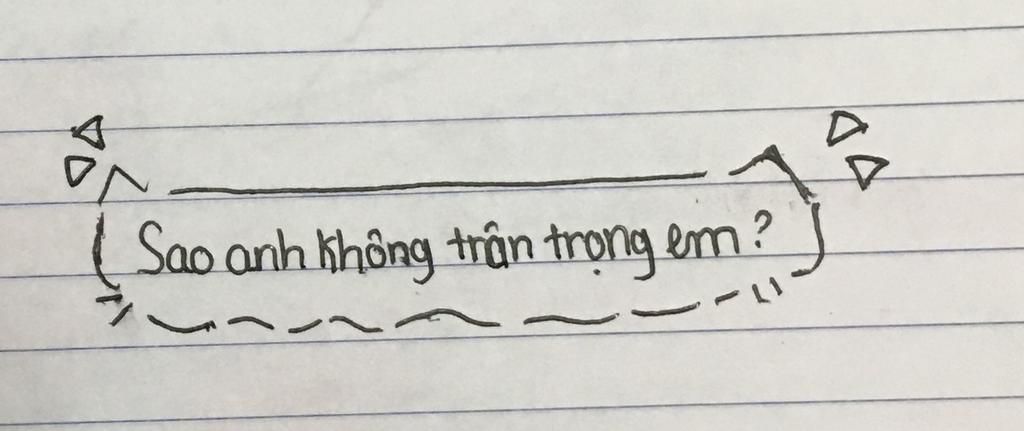 Sao anh không trân trọng em?